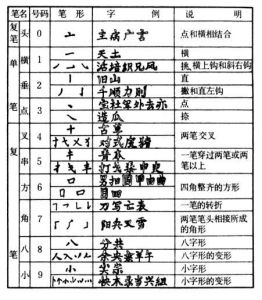 笔名 号码 笔形 字例 说明
复笔 头 0 亠 主病广言 点和横相结合
单笔 横 1 一 天土 横
活培织兄风 挑,横上钩和斜右钩
垂 2 丨 旧山 直
丿 亅 千顺力则 撇和直左钩
点 3 丶 宝社军外去亦 点
造瓜 捺
复笔 叉 4 十 古草 两笔交叉
对式皮猪
串 5 一笔穿过两笔或两笔以上
打戈
方 6 口 四角整齐的方形
角 7 刀写亡表 一笔的转折
阳兵又雪 两笔笔头相接所成的角形
八 8 八 分共 八字形
人 入 余央 羊午 八字形的变形
小 9 小 尖宗 小字形
快木录当兴组 小字形的变形